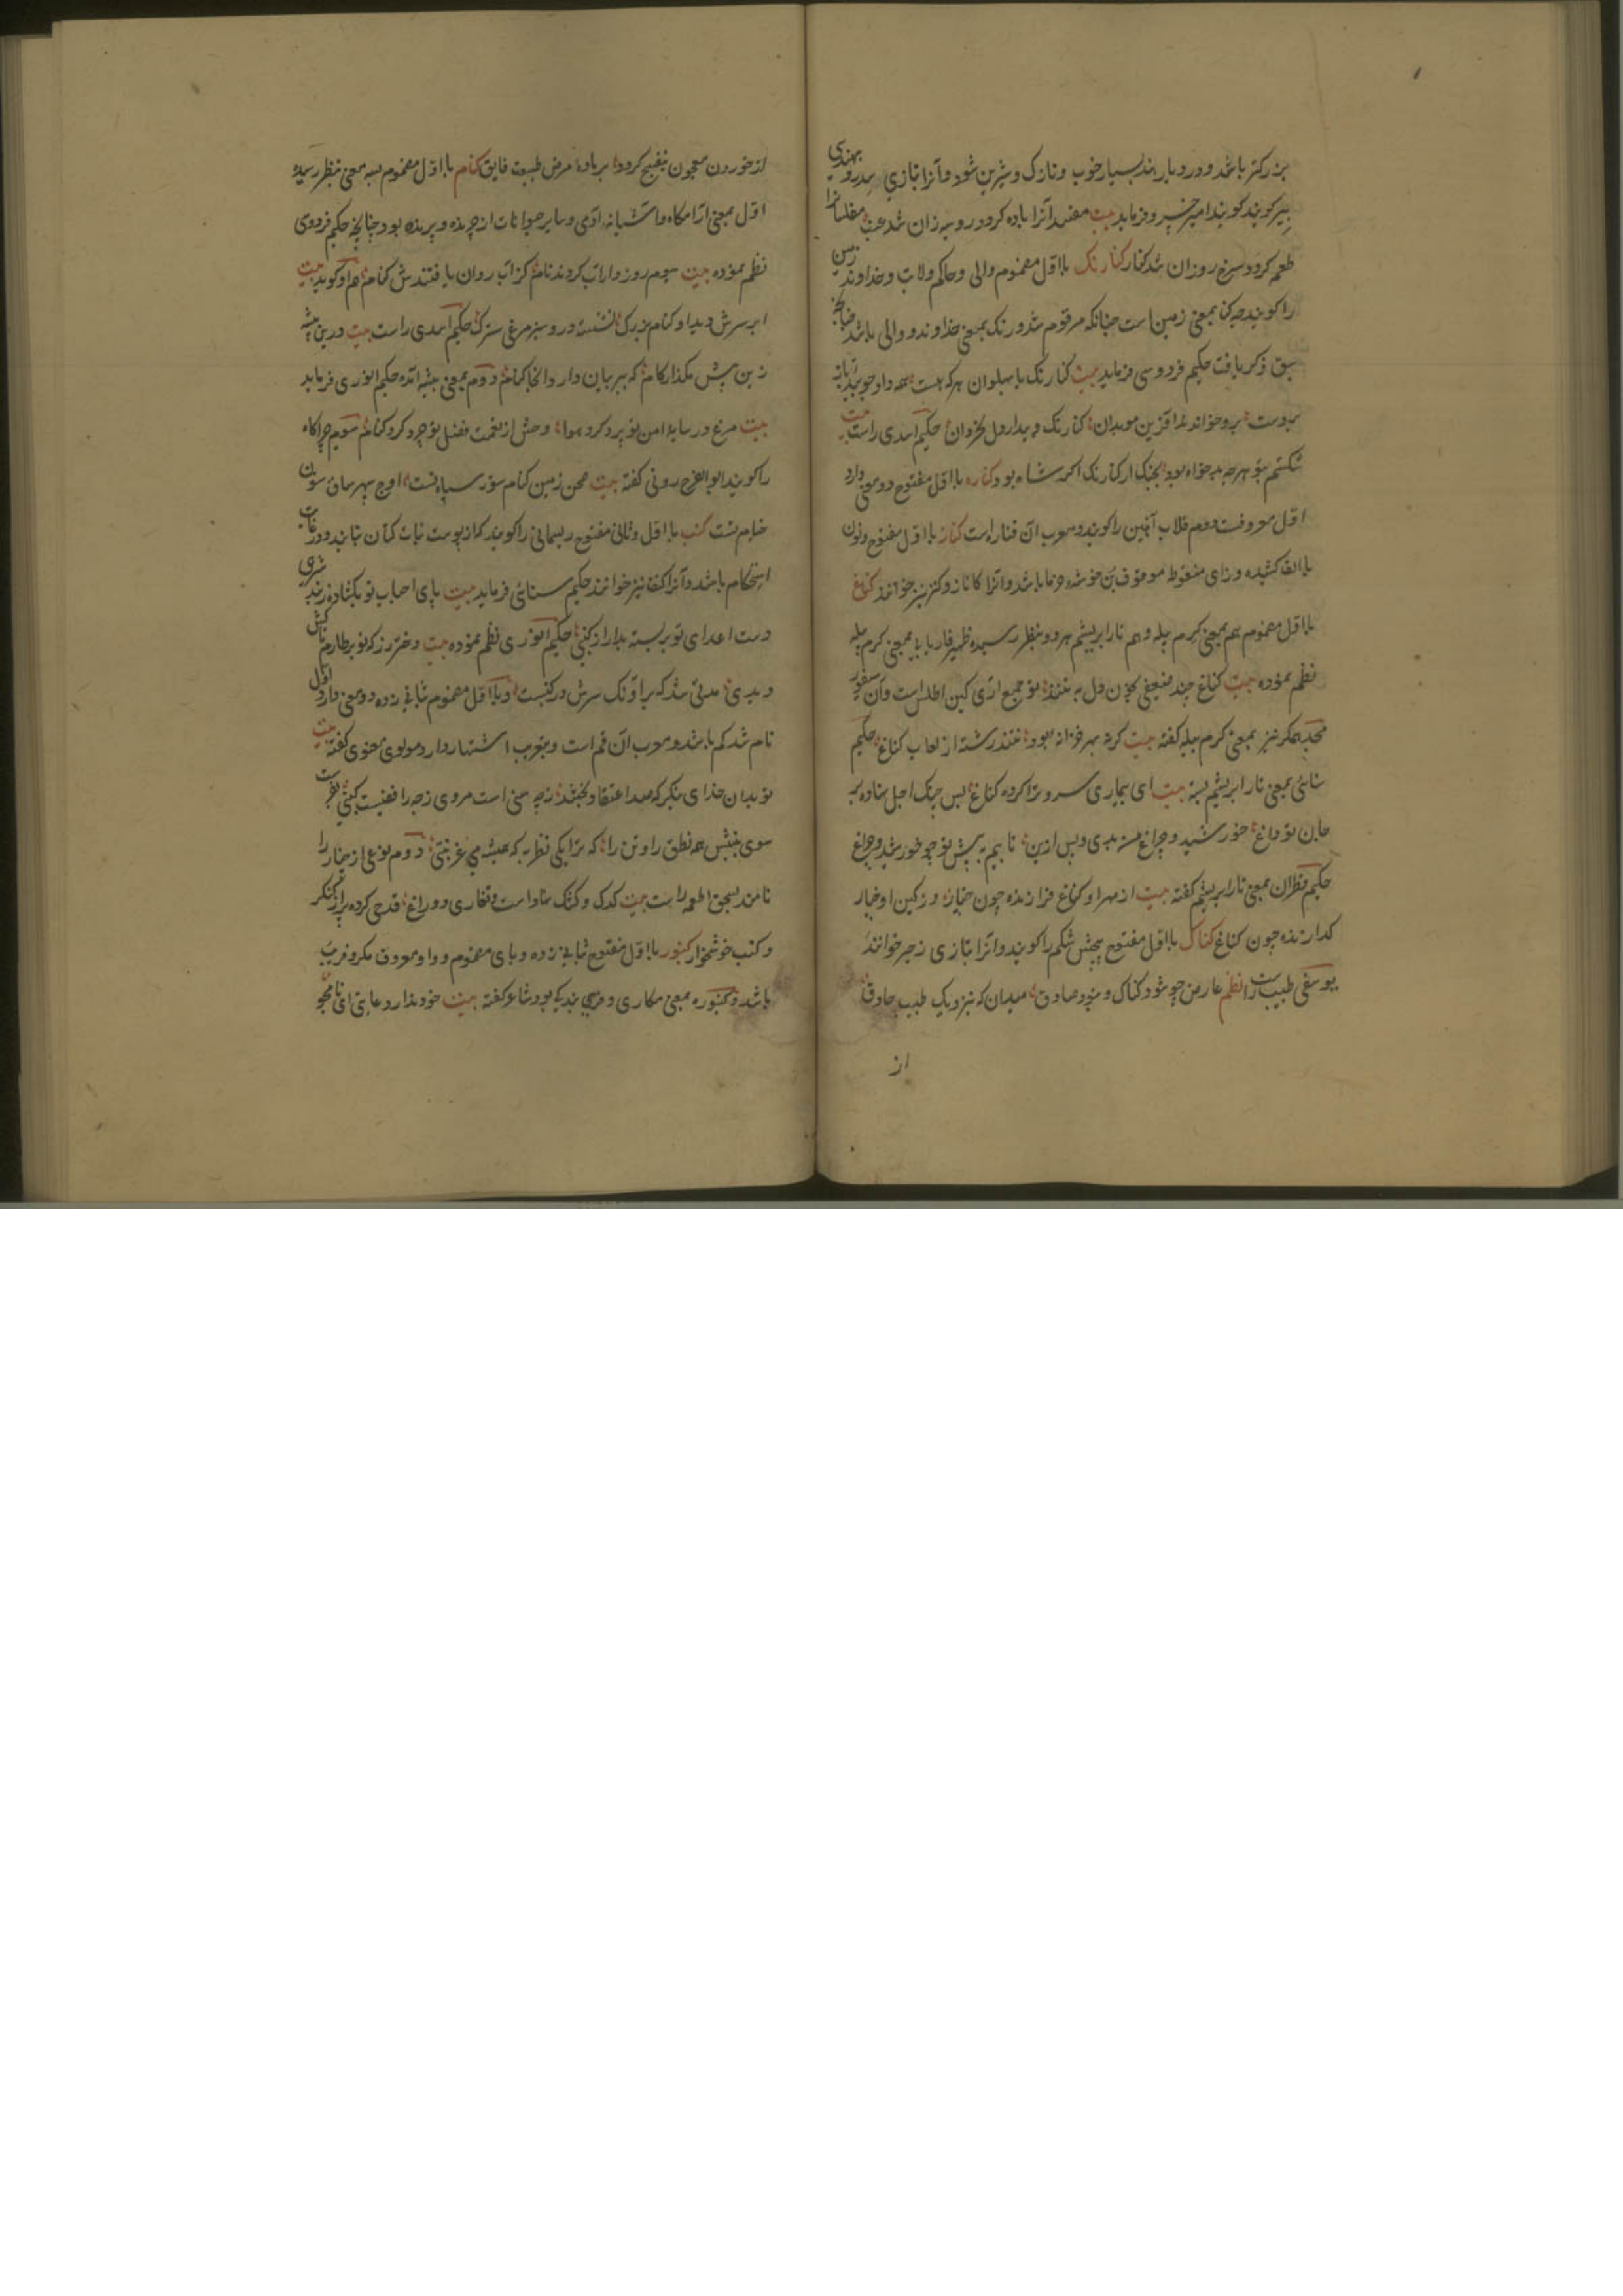 بزرکتر باشد و در دیار هند بسیار خوب و نازک و شیرین شود و آنرا بتازی سدر و بهندی
بیر کویند امیر خسرو فرماید بیت آنرا باده کردد روسیه زان شد عنب مفلسانرا
طعمه کردد سرخ روزان شد کنار کنارنک با اول مضموم والی و حاکم ولایت و خداوند زمین
را کویند چه کنا بمعنی زمین است چنانکه مرقوم شد و رنک بمعنی خداوند و والی باشد چنانچه
سبق ذکر یافت حکیم فردوسی فرماید بیت کنارنک با پهلوان هر که هست همه داد جویید
بدست برو خواندند آفرین موبدان کنارنک و بیداردل بخردان حکیم اسدی راست بیت
شکستم بتو هرچه بدخواه بود بجنک ار کنارنک اکر شاه بود کناره با اول مفتوح دو معنی دارد
اول معروفست دوم قلاب آهنین را کویند و معرب آن قناره است کناز با اول مفتوح و نون
با الف کشیده و زای منقوط موقوف بن خوشه خرما باشد و آنرا کاناز و کنز نیز خوانند کناغ
با اول مضموم هم بمعنی کرم پیله و هم تار ابریشم هر دو بنظر رسیده ظهیر فاریابی بمعنی کرم پیله
نظم نموده بیت کناغ چند ضعیفی بخون دل بتنند تو جمع آری کین اطلس است و آن
محمد عمکر نیز بمعنی کرم پیله کفته بیت کرنه بهر خزانه بود تنند رشته از لعاب کناغ حکیم
سنائی بمعنی تار ابریشم بسته بیت ای بیماری سرو ترا کرده کناغ پس چنک اجل نهاده بر
جان تو داغ خورشید و چراغ من بدی و پس ازین نایم به پیش تو چو خورشید و چراغ
حکیم قطران بمعنی تار ابریشم کفته بیت از مهر او کناغ فرازنده چون چنار وز کین او چنار
کدازنده چون کناغ کناک با اول مفتوح پیچش شکم را کویند و آنرا بتازی زحیر خوانند
یوسفی طبیب راست نظم عارض چو شود کناک و نبود صادق میدان که بنزدیک طبیب حاذق
از
از خوردن معجون بنفسج کردد برباده مرض طبیعت فایق کنام با اول مضموم بسه معنی بنظر رسیده
اول بمعنی آرامکاه و آشیانه آدمی و سایر حیوانات از چرنده و پرنده بود چنانچه حکیم فردوسی
نظم نموده بیت سیوم روز داراب کردند نام کز آب روان یافتندش کنام هم او کوید بیت
ابر سرش دید او کنام بزرک نشسته درو سبز مرغی سترک حکیم اسدی راست بیت درین بیشه
زین پیش مکذار کام که ببر بیان دارد آنجا کنام دوم بمعنی بیشه آمده حکیم انوری فرماید
بیت مرغ در سایه امن تو پرد کرد هوا وحش از نعمت فضل تو چرد کرد کنام سیوم چراکاه
را کویند ابوالفرج رونی کفته بیت صحن زمین کنام ستور سپاه تست اوج سپهر ساق ستون
خیام تست کنب با اول و ثانی مفتوح ریسمانی را کویند که از پوست نبات کتان تابند و در غایت
استحکام باشد و آنرا کنف نیز خوانند حکیم سنائی فرماید بیت پای احباب تو بکشاده زبند
دست اعدای تو بربسته بدار از کنبی حکیم انوری نظم نموده بیت دختر رز که تو بر طارم تاکش
دیدی مدتی شد که بر آونک سرش در کنبست و با اول مضموم بثانی زده دو معنی دارد اول
نام شد کم باشد و معرب آن قم است و بتعریب اشتهار دارد مولوی معنوی کفته بیت
تو بدان خدای بنکر که صد اعتقاد بخشد زچه سنی است مروزی زچه رافضیست کنبی
سوی بینش همه نطق راوتن را که ترا یکی نظر به که همیشه می غربنتی دوم نوعی از خیار را
نامند بسحق اطعمه راست بیت کدک و کنک شاداست و تغاری دوراغ قدحی کرده پر از کنکر
و کنب خوشخوار کنبور با اول مفتوح بثانی زده و بای مضموم و واو معروف مکر و فریب
باشد و کنبوره بمعنی مکاری و فریبندکی بود شاعر کفته بیت خود ندارد عادتی ای نامجو